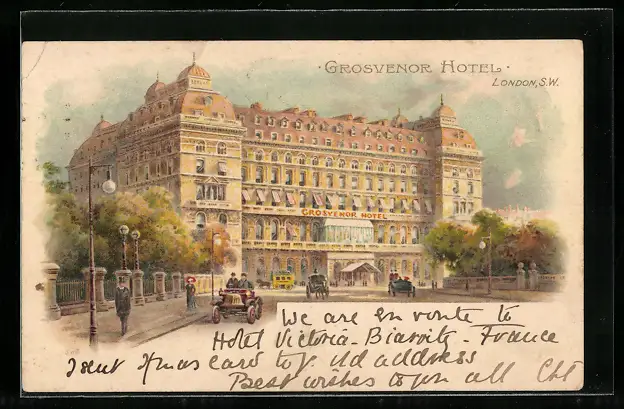 · GROSVENOR HOTEL ·
LONDON, S.W.
GROSVENOR HOTEL
We are en route to
Hotel Victoria - Biarritz - France
I sent Xmas card to yr old address
Best wishes to you all